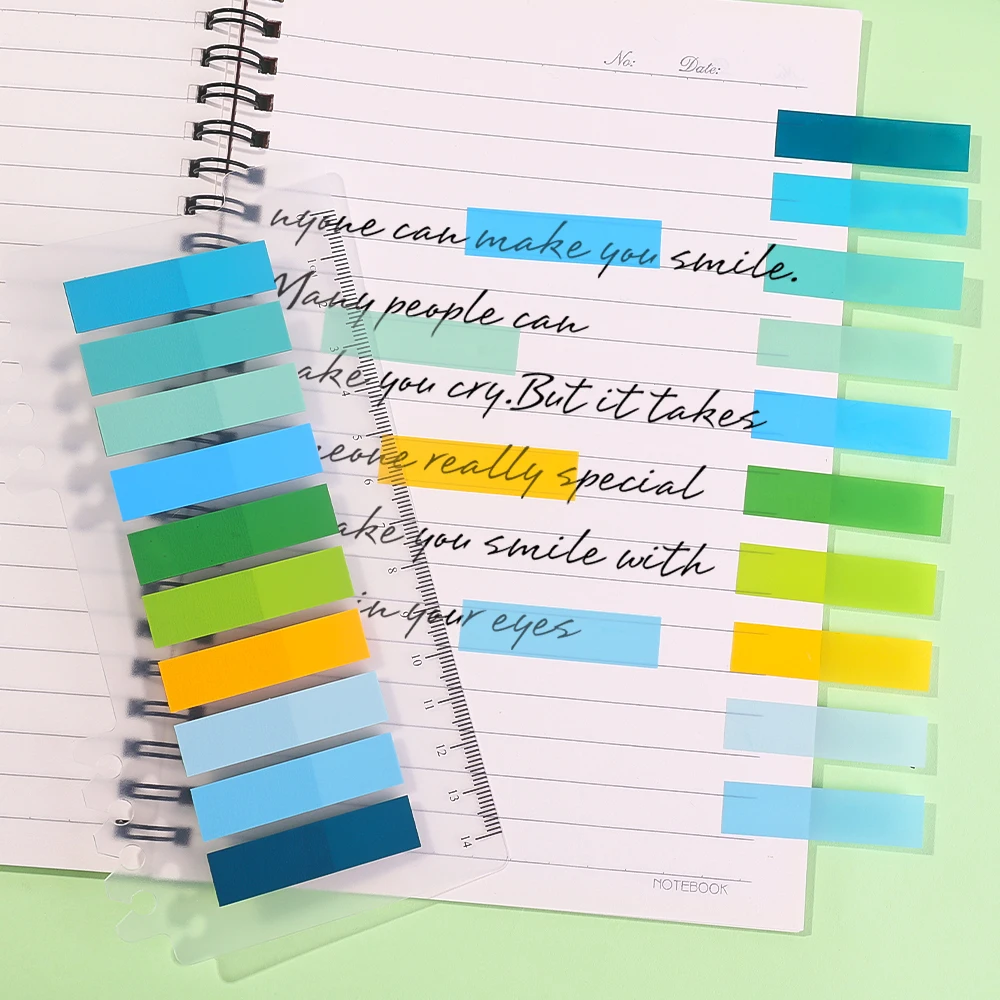 No: Date:
nyone can make you smile.
Many people can
ake you cry.But it takes
eone really special
ake you smile with
in your eyes
3
4
5
6
8
10
11
12
13
14
NOTEBOOK